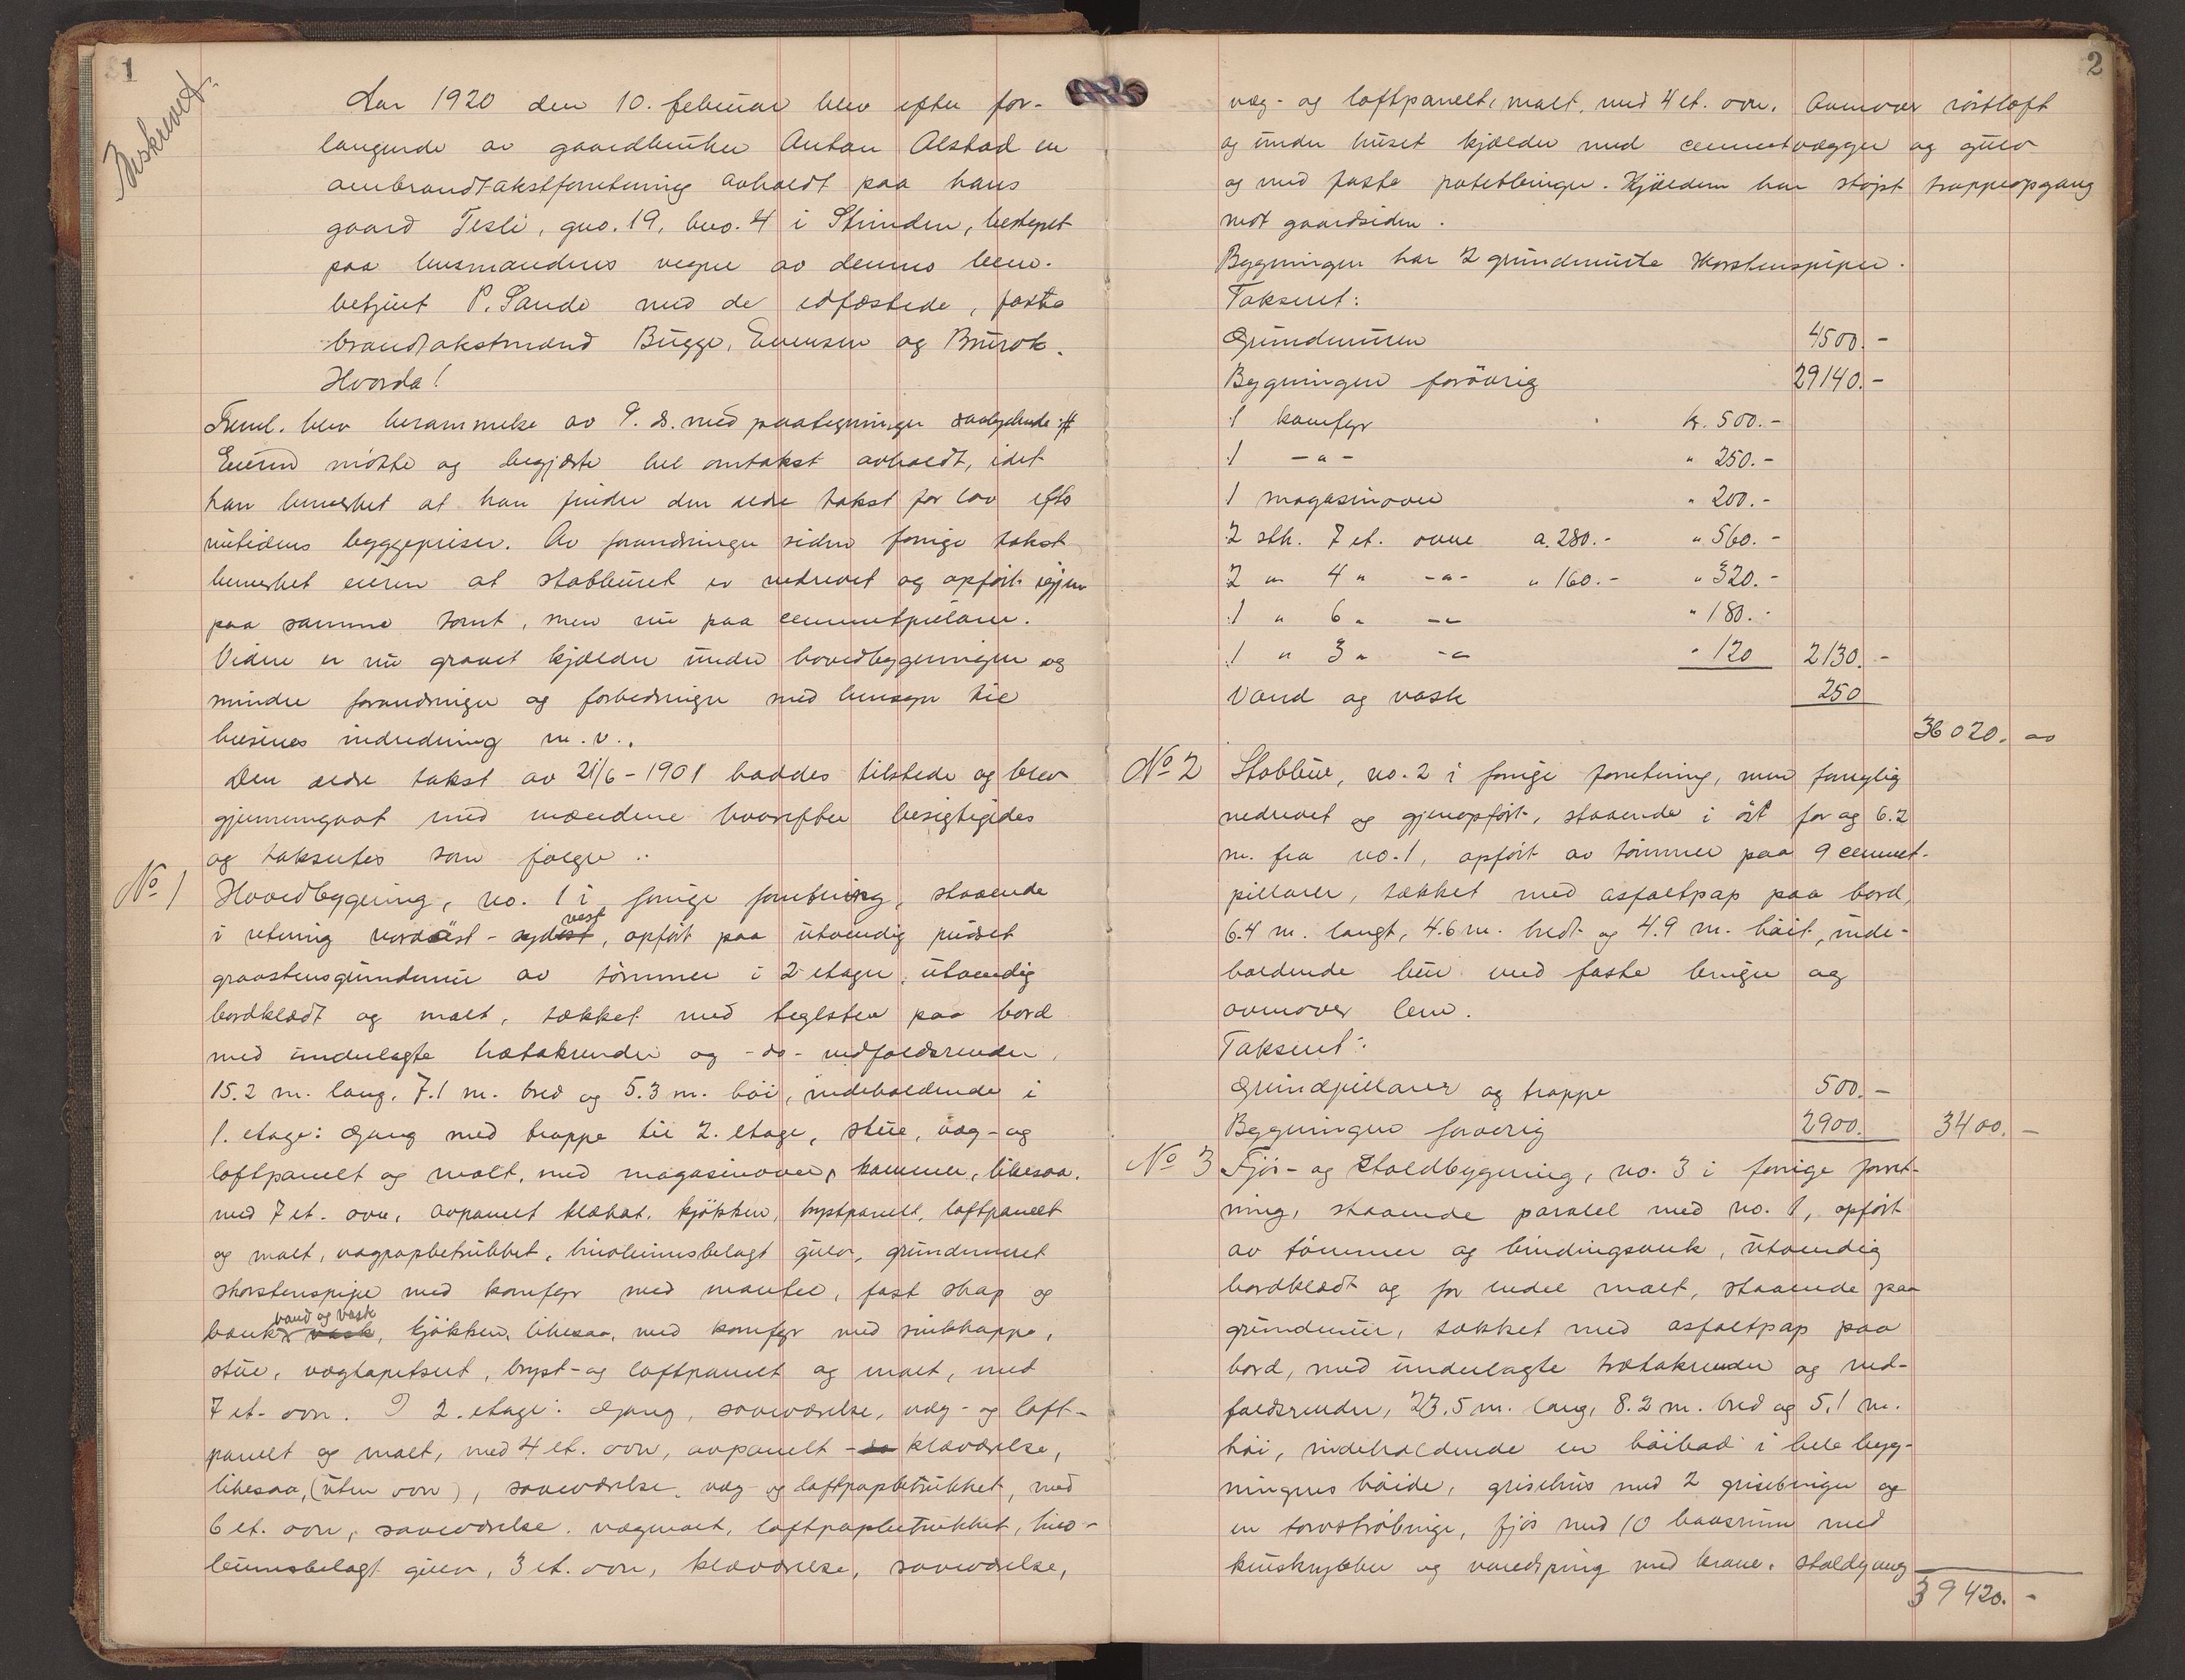 1
Beskrevet.
Aar 1920 den 10. februar blev efter for-
langende av gaardbruker Anton Alstad en
ombrandtakstforretning avholdt paa hans
gaard Tesli, gno. 19, bno. 4 i Strinden, bestyret
paa lensmandens vegne av dennes lens.
betjent P. Sando med de edfæstede, faste
brandtakstmænd Bugge, Evensen og Burok.
Hvorda!
Freml. blev berammelse av 9. ds. med paategninger saalydende #
Eieren møtte og begjærte hel omtakst avholdt, idet
han bemerket at han finder den ældre takst for lav efter
nutidens byggepriser. Av forandringer siden forrige takst
bemerket eieren at stabburet er nedrevet og opført igjen
paa samme tomt, men nu paa cementpilarer.
Videre er nu gravet kjælder under hovedbygningen og
mindre forandringer og forbedringer med hensyn til
husenes indredning m. v..
Den ældre takst av 21/6 - 1901 haddes tilstede og blev
gjennemgaat med mændene hvorefter besigtigedes
og taksertes som følger:
No 1 Hovedbygning, no. 1 i forrige forretning, staaende
i retning nordøst - sydvest, opført paa utvendig pudset
graastensgrundmur av tømmer i 2 etager, utvendig
bordklædt og malt, tækket med teglsten paa bord
med underlagte trætakrender og -do- nedfaldsrender,
15.2 m. lang, 7.1 m. bred og 5.3 m. høi, indeholdende i
1. etage: Gang med trappe til 2. etage, stue, væg- og
loftpanelt og malt, med magasinovn, kammer, likesaa,
med 7 et. ovn, avpanelt klækot, kjøkken, brystpanelt, loftpanelt
og malt, vægpapbetrukket, linoleumsbelagt gulv, grundmuret
skorstenspipe med komfyr med mantel, fast skap og
bænk, vand og vask, kjøkken, likesaa, med komfyr med sinkkappe,
stue, vægtapetsert, bryst- og loftpanelt og malt, med
7 et. ovn. I 2. etage: Gang, soveværelse, væg- og loft-
panelt og malt, med 4 et. ovn, avpanelt klæværelse,
likesaa, (uten ovn), soveværelse, væg- og loftpapbetrukket, med
6 et. ovn, soveværelse, vægmalt, loftpapbetrukket, lino-
leumsbelagt gulv, 3 et. ovn, klæværelse, soveværelse,
2
væg- og loftpanelt, malt, med 4 et. ovn. Ovenover røstloft
og under huset kjælder med cementvægger og gulv
og med faste potetbinger. Kjælderen har støpt trappeopgang
mot gaardsiden.
Bygningen har 2 grundmurte skorstenspiper.
Taksert:
Grundmuren 4500.-
Bygningen forøvrig 29140.-
1 komfyr kr. 500.-
1 -"- " 250.-
1 magasinovn " 200.-
2 stk. 7 et. ovne a. 280.- " 560.-
2 " 4 " -"- " 160.- " 320.-
1 " 6 " -"- " 180.-
1 " 3 " -"- " 120 2130.-
Vand og vask 250
36 020. 00
No 2 Stabbur, no. 2 i forrige forretning, men fornylig
nedrevet og gjenopført, staaende i øst for og 6.2
m. fra no. 1, opført av tømmer paa 9 cement-
pillarer, tækket med asfaltpap paa bord,
6.4 m. langt, 4.6 m. bredt og 4.9 m. høit, inde-
holdende bur med faste binger og
ovenover lem.
Taksert:
Grundpillarer og trappe 500.-
Bygningen forøvrig 2900. 3400.-
No 3 Fjøs- og Staldbygning, no. 3 i forrige forret-
ning, staaende paralel med no. 1, opført
av tømmer og bindingsverk, utvendig
bordklædt og for endel malt, staaende paa
grundmur, tækket med asfaltpap paa
bord, med underlagte trætakrender og ned-
faldsrender, 23.5 m. lang, 8.2 m. bred og 5.1 m.
høi, indeholdende en høibod i hele byg-
ningens høide, grisehus med 2 grisebinger og
en torvstrøbinge, fjøs med 10 baasrum med
krubber og vandspring med krane, staldgang
39 420.-